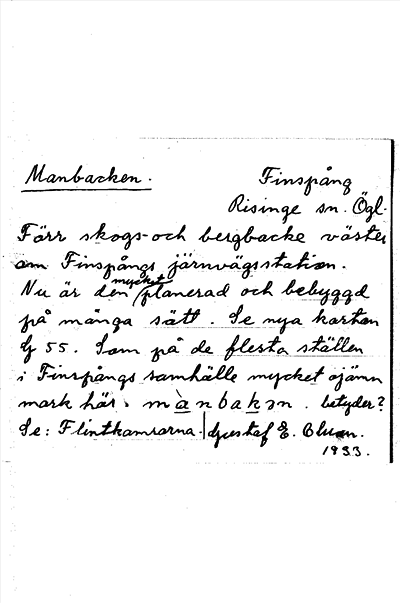 Manbacken. Finspång
Risinge sn. Ögl.
Förr skogs- och bergbacke väster
om Finspångs järnvägsstation.
Nu är den mycket planerad och bebyggd
på många sätt. Se nya kartan
G 55. Som på de flesta ställen
i Finspångs samhälle mycket ojämn
mark här. mànbakən. betyder?
Se: Flintkamrarna. Gustaf E.
1933.